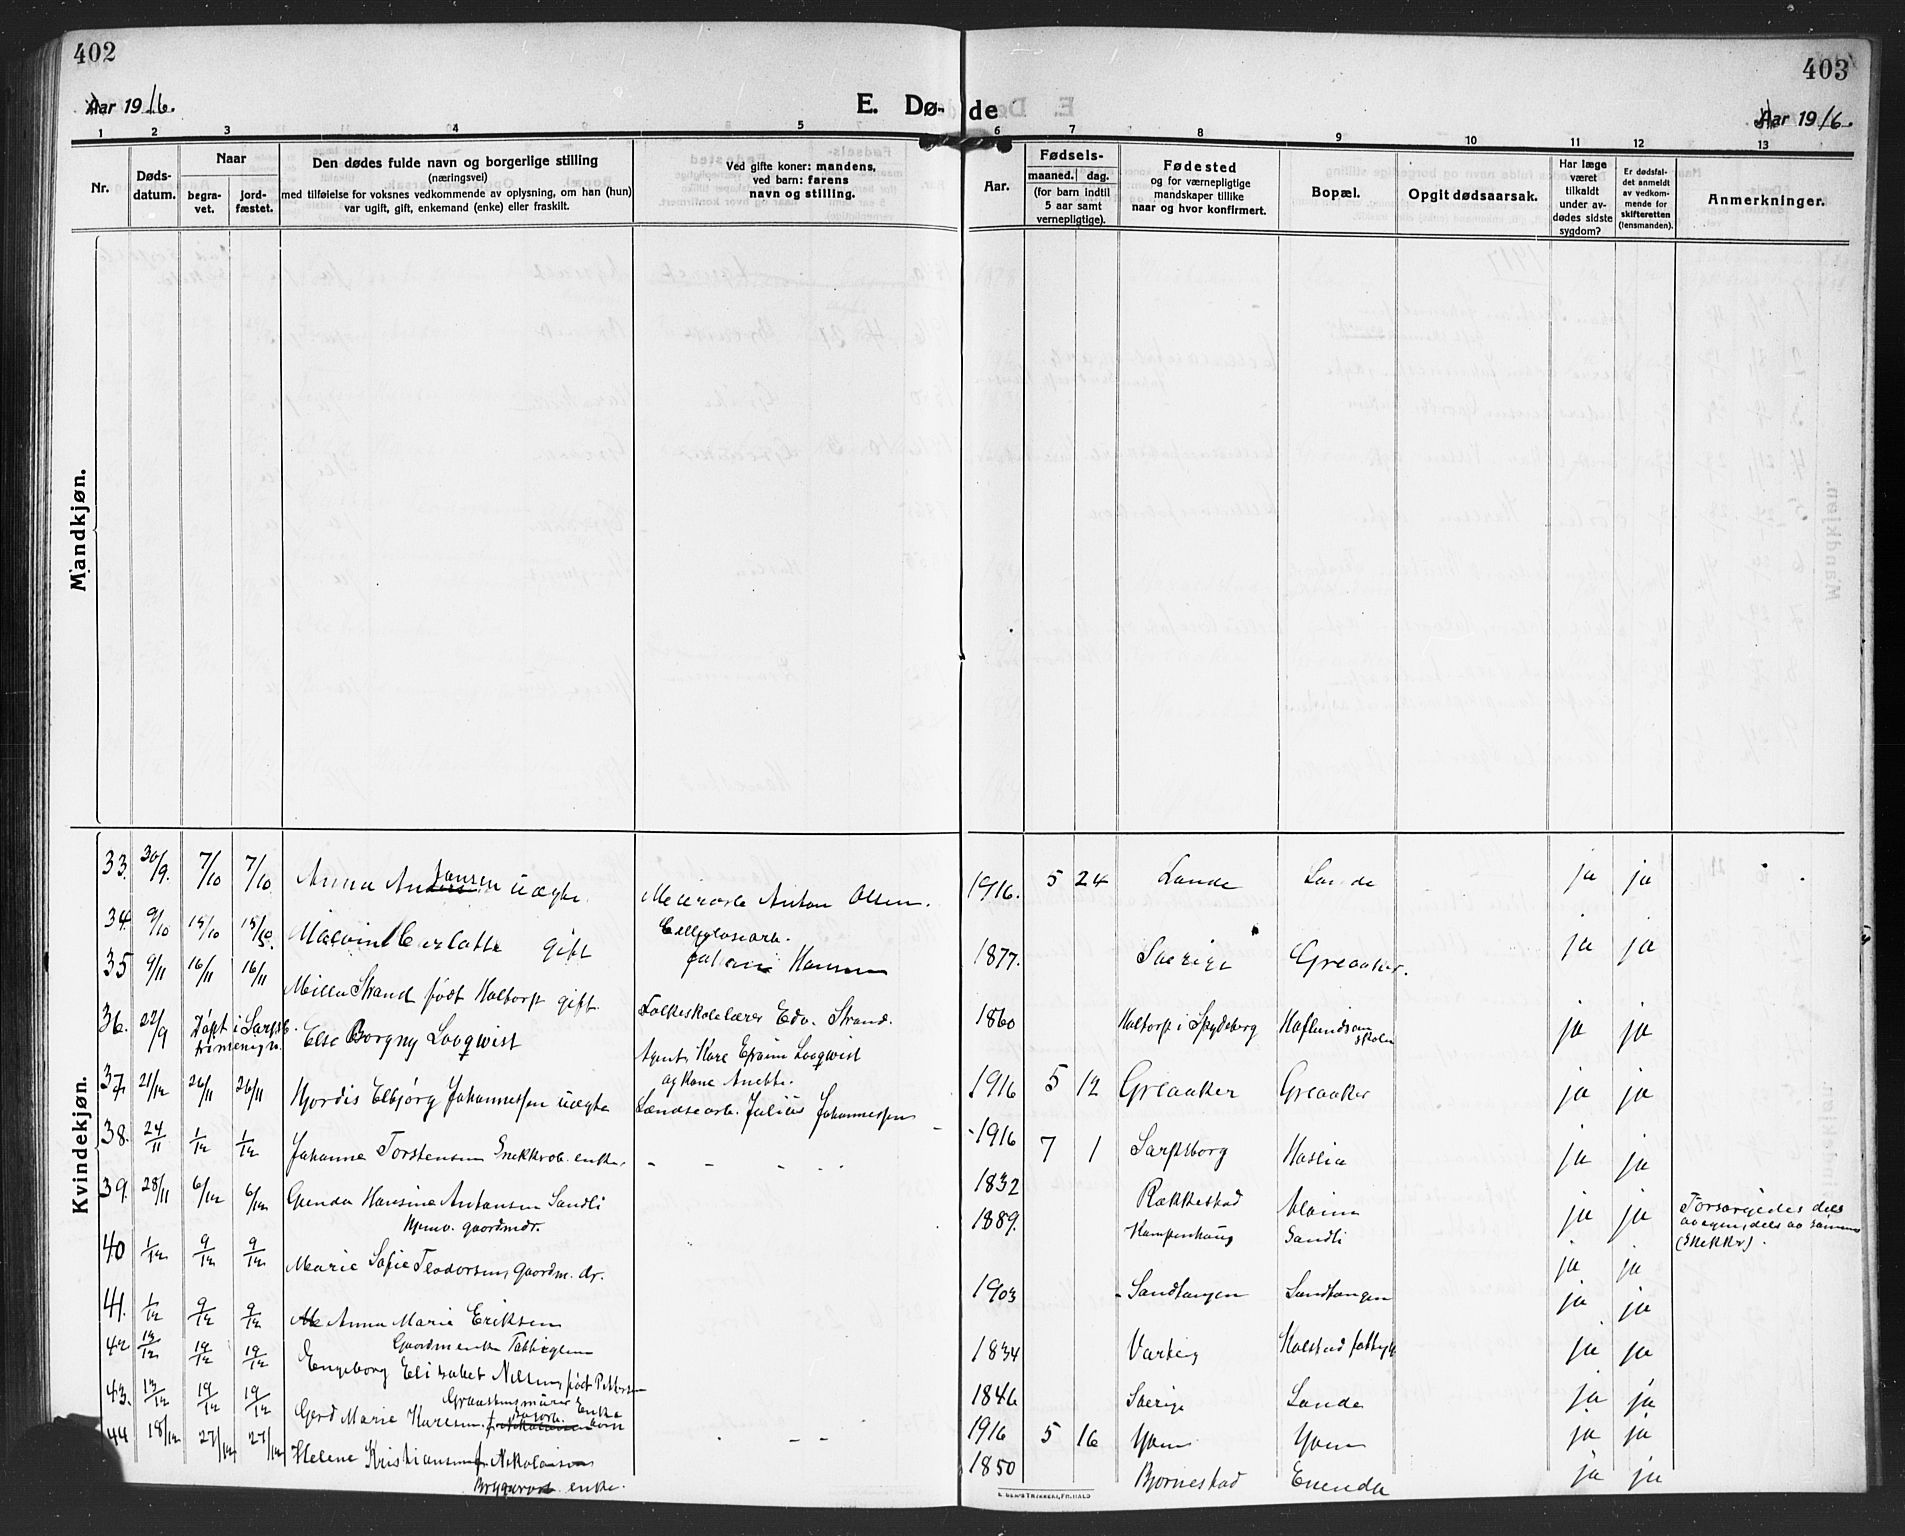 402
403
Aar 1916.
E. Døde
Aar 1916.
1 2 3 4 5 6 7 8 9 10 11 12 13
Nr.
Døds-
datum.
Naar
begra-
vet.
jord-
fæstet.
Den dødes fulde navn og borgerlige stilling
(næringsvei)
med tilføielse for voksnes vedkommende av oplysning, om han (hun)
var ugift, gift, enkemand (enke) eller fraskilt.
Ved gifte koner: mandens,
ved barn: farens
navn og stilling.
Aar.
Fødsels-
maaned. dag.
(for barn indtil
5 aar samt
vernepligtige).
Fødested
og for værnepligtige
mandskaper tillike
naar og hvor konfirmert.
Bopæl.
Opgit dødsaarsak.
Har læge
været
tilkaldt
under av-
dødes sidste
sygdom?
Er dødsfal-
det anmeldt
av vedkom-
mende for
skifteretten
(lensmanden).
Anmerkninger.
Mandkjøn.
Kvindekjøn.
33. 30/9. 7/10 7/10 Anna Jansen uægte Meieriarb. Anton Olsen. 1916. 5 24 Lande Lande ja ja
34. 9/10 15/10 15/10 Malvine Carlotte gift Cellulosearb.
Hansen 1877. Sverige Greaaker. ja ja
35 9/11 16/11 16/11 Milla Strand født Haltorp gift Folkeskolelærer Edv. Strand. 1860 Haltorp i Spydeberg Haflundsøen
skolen ja ja
36. 22/9 Døpt i Sarpsb.
Else Borgny Looqwist Agent Kare Efraim Looqwist
og kone Anette. 1916 5 12 Greaaker Greaaker ja ja
37. 21/12 26/11 26/11 Hjordis Elbjørg Johannessen uægte Lændsearb. Julius Johannessen 1916 7 1 Sarpsborg Haslia ja ja
38. 24/11 1/12 1/12 Johanne Torstensen Snekkerob. enke. - - - - 1832 Rækkestad Alvim ja ja Forsørgedes dels
av egen, dels av sønnens
(Snekker).
39. 28/11 6/12 6/12 Gunda Hansine Antonsen Sandli
Hjemv. gaardmdr. 1889. Kampenhaug Sandli ja ja
40 1/12 9/12 9/12 Marie Sofie Teodorsen, gaardm. dr. 1903 Sandtangen Sandtangen ja ja
41. 1/12 9/12 9/12 Anna Marie Eriksen
Gaardm enke Fattiglem 1834 Varteig Kalstad fattigg. ja ja
42 13/12 19/12 19/12 Engeborg Elisabet Nilsen født Pettersen
Enke 1846 Sverige Lande ja ja
43. 13/12 19/12 19/12 Gerd Marie Karesen 1916 5 16 Yven Yven ja ja
44 18/12 27/12 27/12 Helene Kristiansen f. Nikolaisen
Bryggerarb enke. - - 1850 Bjørnestad Enenda ja ja
E. SEM'S TRYKKERI, FR.HALD